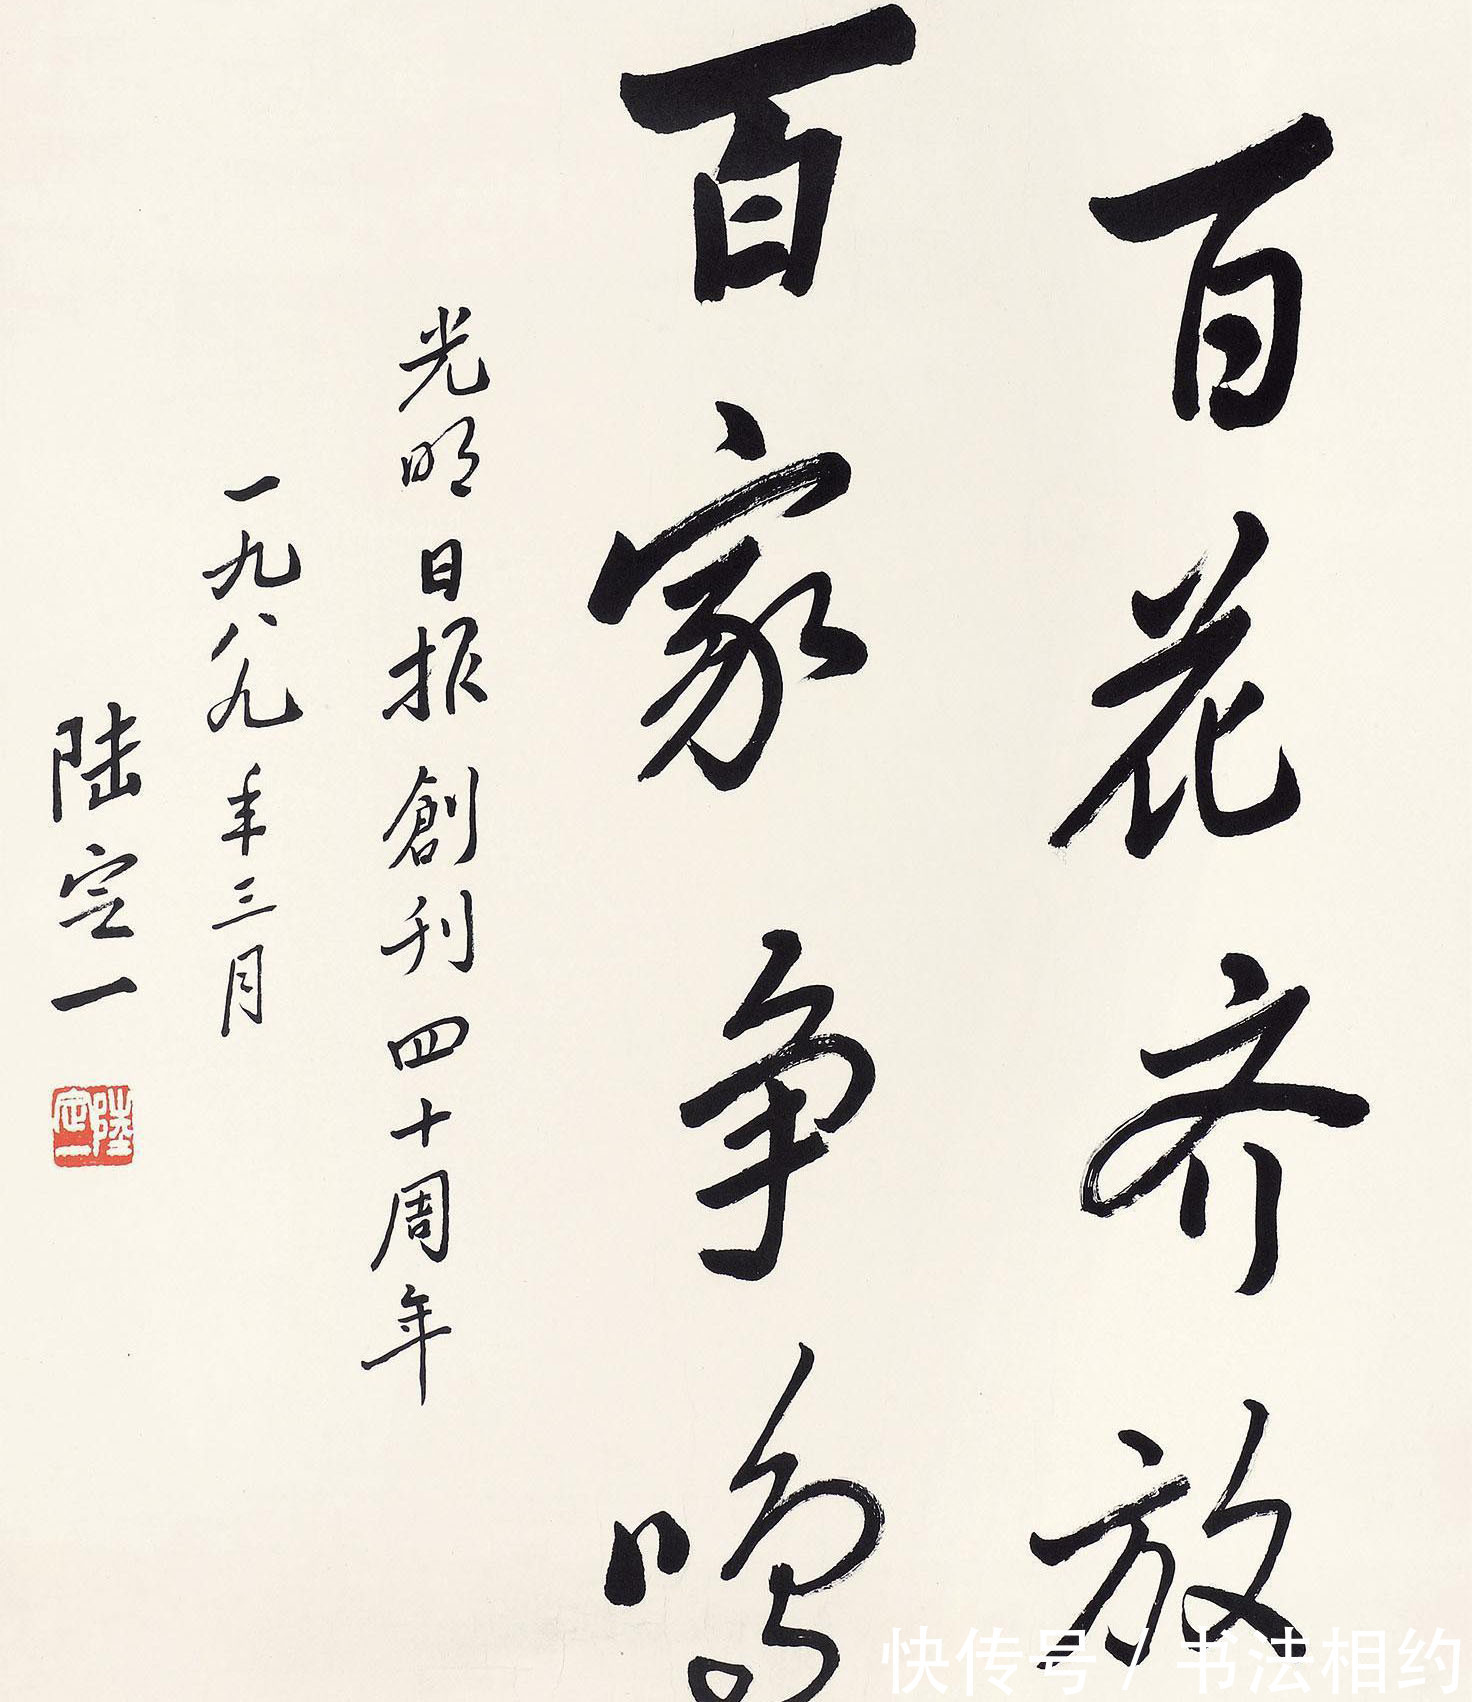 百花齐放
百家争鸣
光明日报創刊四十周年
一九八九年三月
陆定一
陸定一
快传号 / 书法相约